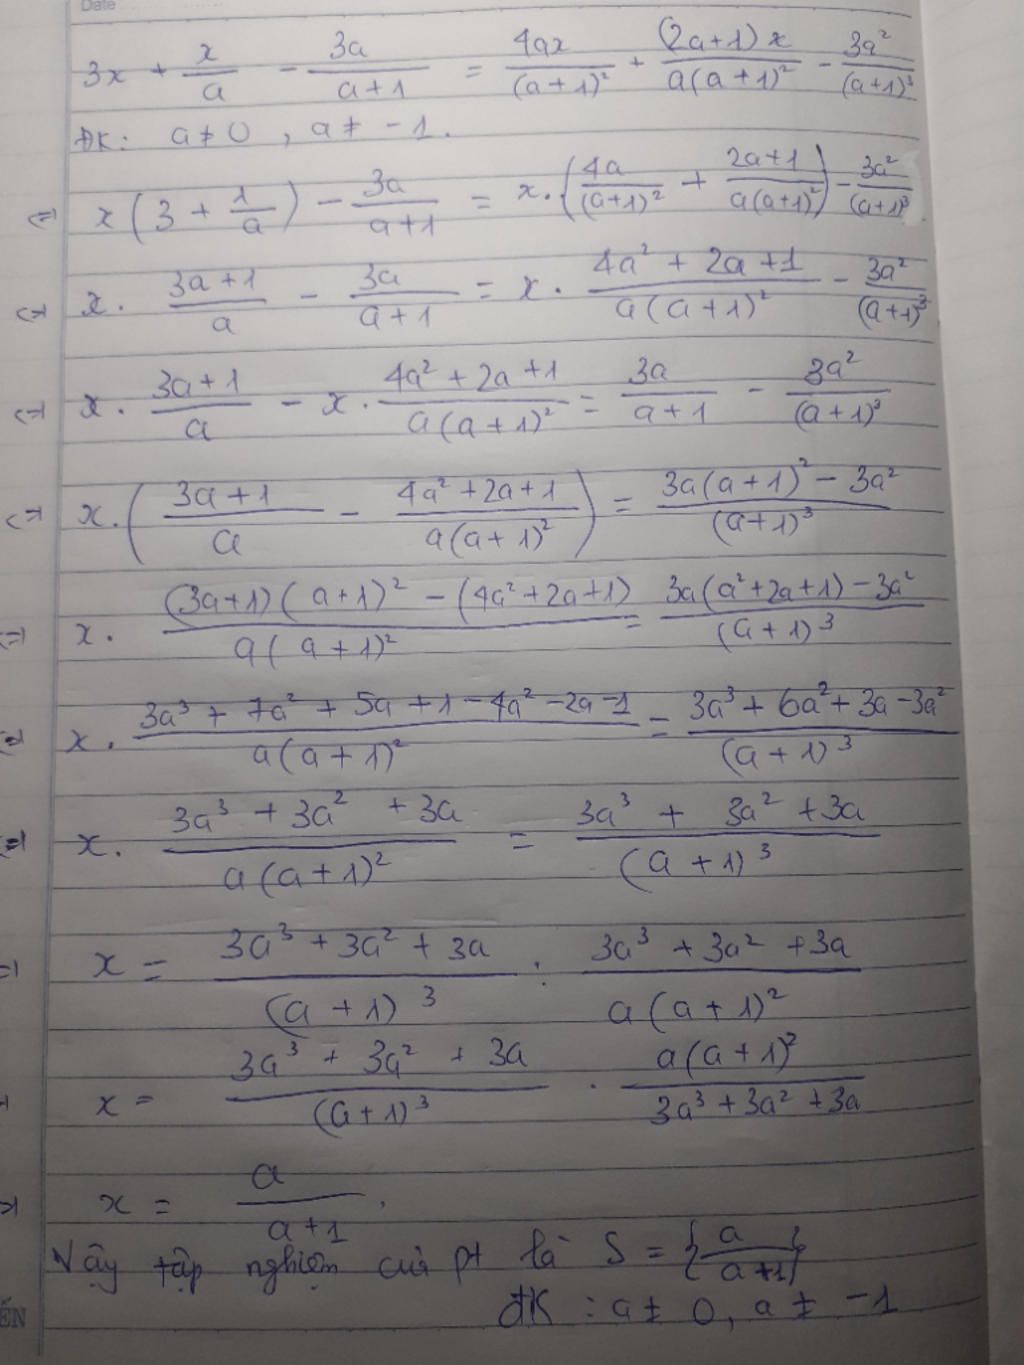 Date
3x + x/a - 3a/(a+1) = 4ax/(a+1)² + (2a+1)x/(a(a+1)²) - 3a²/(a+1)³
ĐK: a ≠ 0, a ≠ -1.
<=> x(3 + 1/a) - 3a/(a+1) = x.(4a/(a+1)² + (2a+1)/(a(a+1)²)) - 3a²/(a+1)³
<=> x. (3a+1)/a - 3a/(a+1) = x. (4a²+2a+1)/(a(a+1)²) - 3a²/(a+1)³
<=> x. (3a+1)/a - x. (4a²+2a+1)/(a(a+1)²) = 3a/(a+1) - 3a²/(a+1)³
<=> x.((3a+1)/a - (4a²+2a+1)/(a(a+1)²)) = (3a(a+1)² - 3a²)/(a+1)³
<=> x. ((3a+1)(a+1)² - (4a²+2a+1))/(a(a+1)²) = (3a(a²+2a+1) - 3a²)/(a+1)³
<=> x. (3a³+7a²+5a+1-4a²-2a-1)/(a(a+1)²) = (3a³+6a²+3a-3a²)/(a+1)³
<=> x. (3a³+3a²+3a)/(a(a+1)²) = (3a³+3a²+3a)/(a+1)³
<=> x = (3a³+3a²+3a)/(a+1)³ : (3a³+3a²+3a)/(a(a+1)²)
x = (3a³+3a²+3a)/(a+1)³ . a(a+1)²/(3a³+3a²+3a)
x = a/(a+1).
Vậy tập nghiệm của pt là S = {a/(a+1)}
ĐK: a ≠ 0, a ≠ -1
ẾN